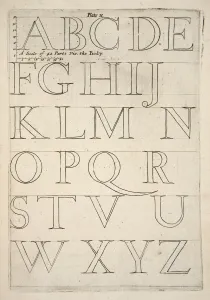 Plate 11
ABCDE
A Scale of 42 Parts for the Body.
FGHIJ
KLMN
OPQR
STVU
WXYZ